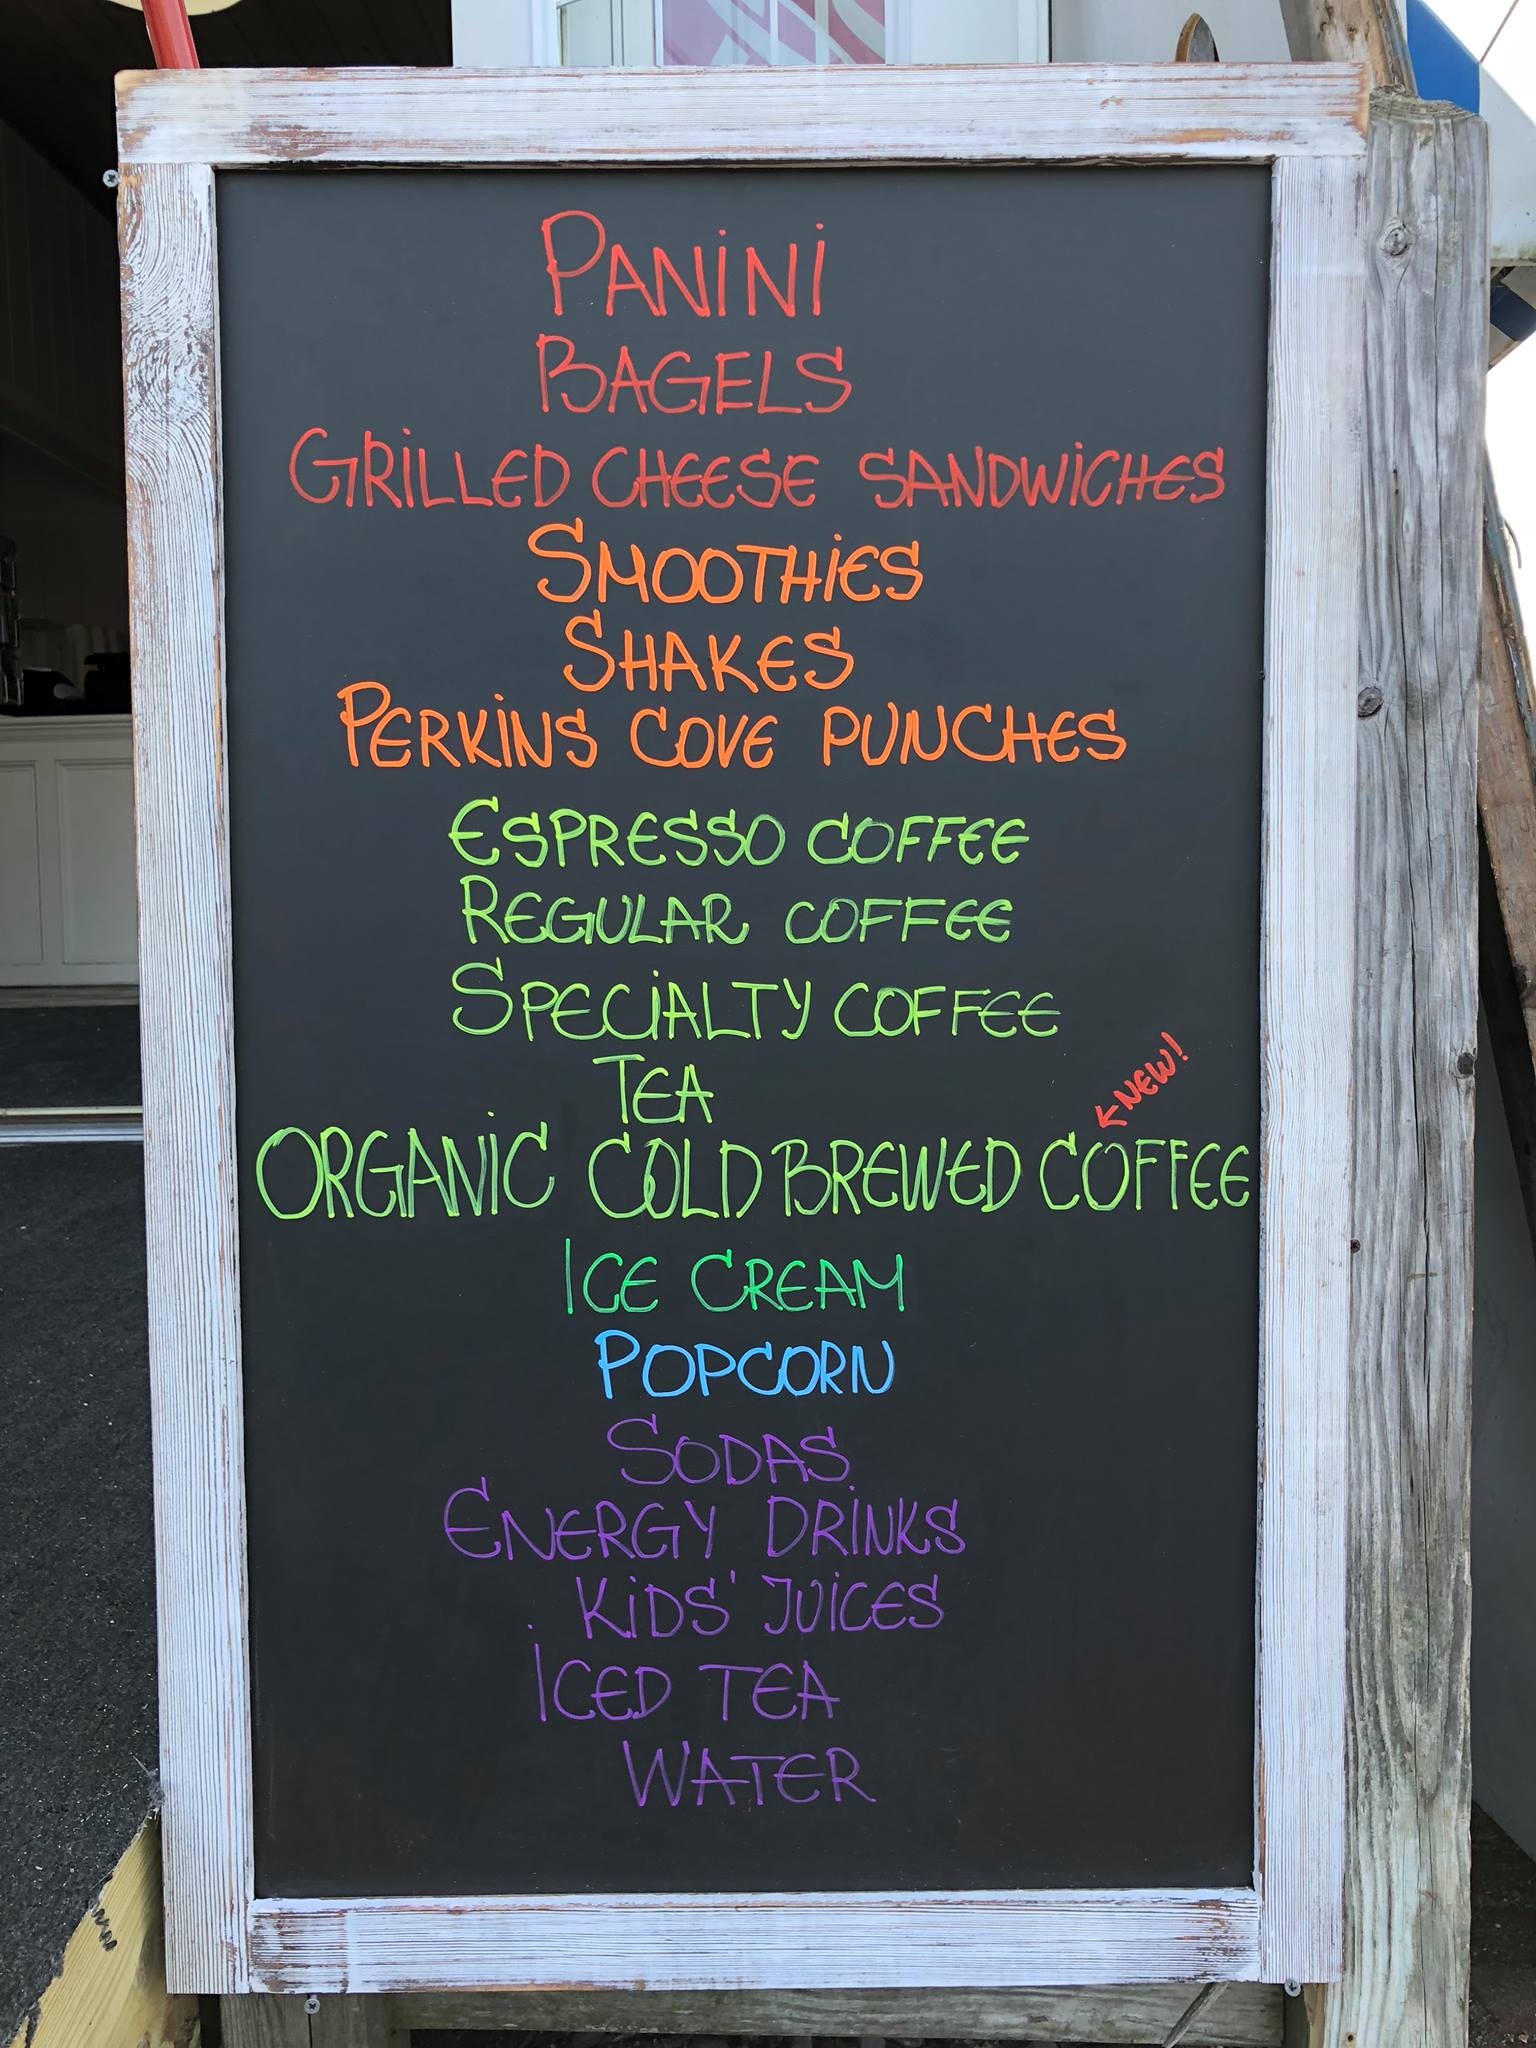 PANINI
BAGELS
GRILLED CHEESE SANDWICHES
SMOOTHIES
SHAKES
PERKINS COVE PUNCHES
ESPRESSO COFFEE
REGULAR COFFEE
SPECIALTY COFFEE
TEA
← NEW!
ORGANIC COLD BREWED COFFEE
ICE CREAM
POPCORN
SODAS
ENERGY DRINKS
KIDS' JUICES
ICED TEA
WATER